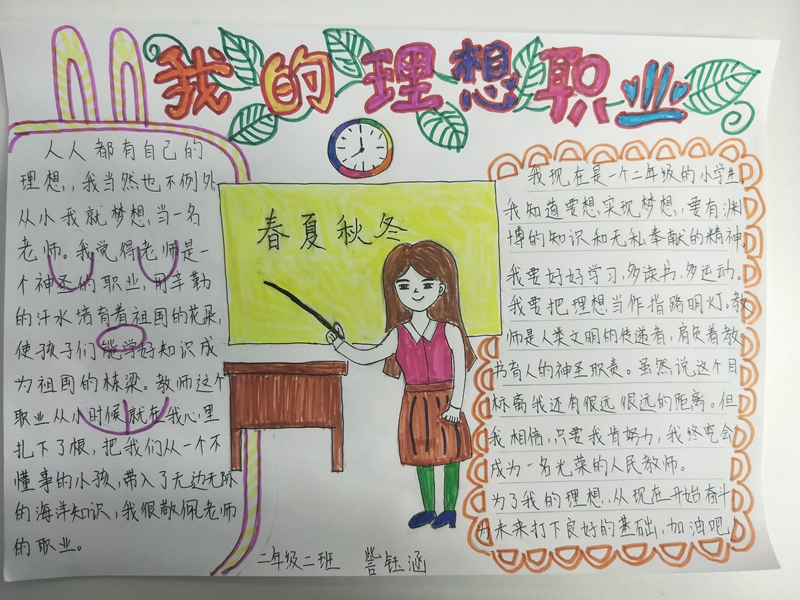 我的理想职业
人人都有自己的
理想,我当然也不例外
从小我就梦想,当一名
老师。我觉得老师是一
个神圣的职业,用辛勤
的汗水培育着祖国的花朵,
使孩子们能学好知识成
为祖国的栋梁。教师这个
职业从小时候就在我心里
扎下了根,把我们从一个不
懂事的小孩,带入了无边无际
的海洋知识,我很敬佩老师
的职业。
春夏秋冬
我现在是一个二年级的小学生,
我知道要想实现梦想,要有渊
博的知识和无私奉献的精神。
我要好好学习,多读书,多运动。
我要把理想当作指路明灯。教
师是人类文明的传递者,肩负着教
书育人的神圣职责。虽然说这个目
标离我还有很远很远的距离。但
我相信,只要我肯努力,我终究会
成为一名光荣的人民教师。
为了我的理想,从现在开始奋斗
为未来打下良好的基础,加油吧!
二年级二班 钰涵